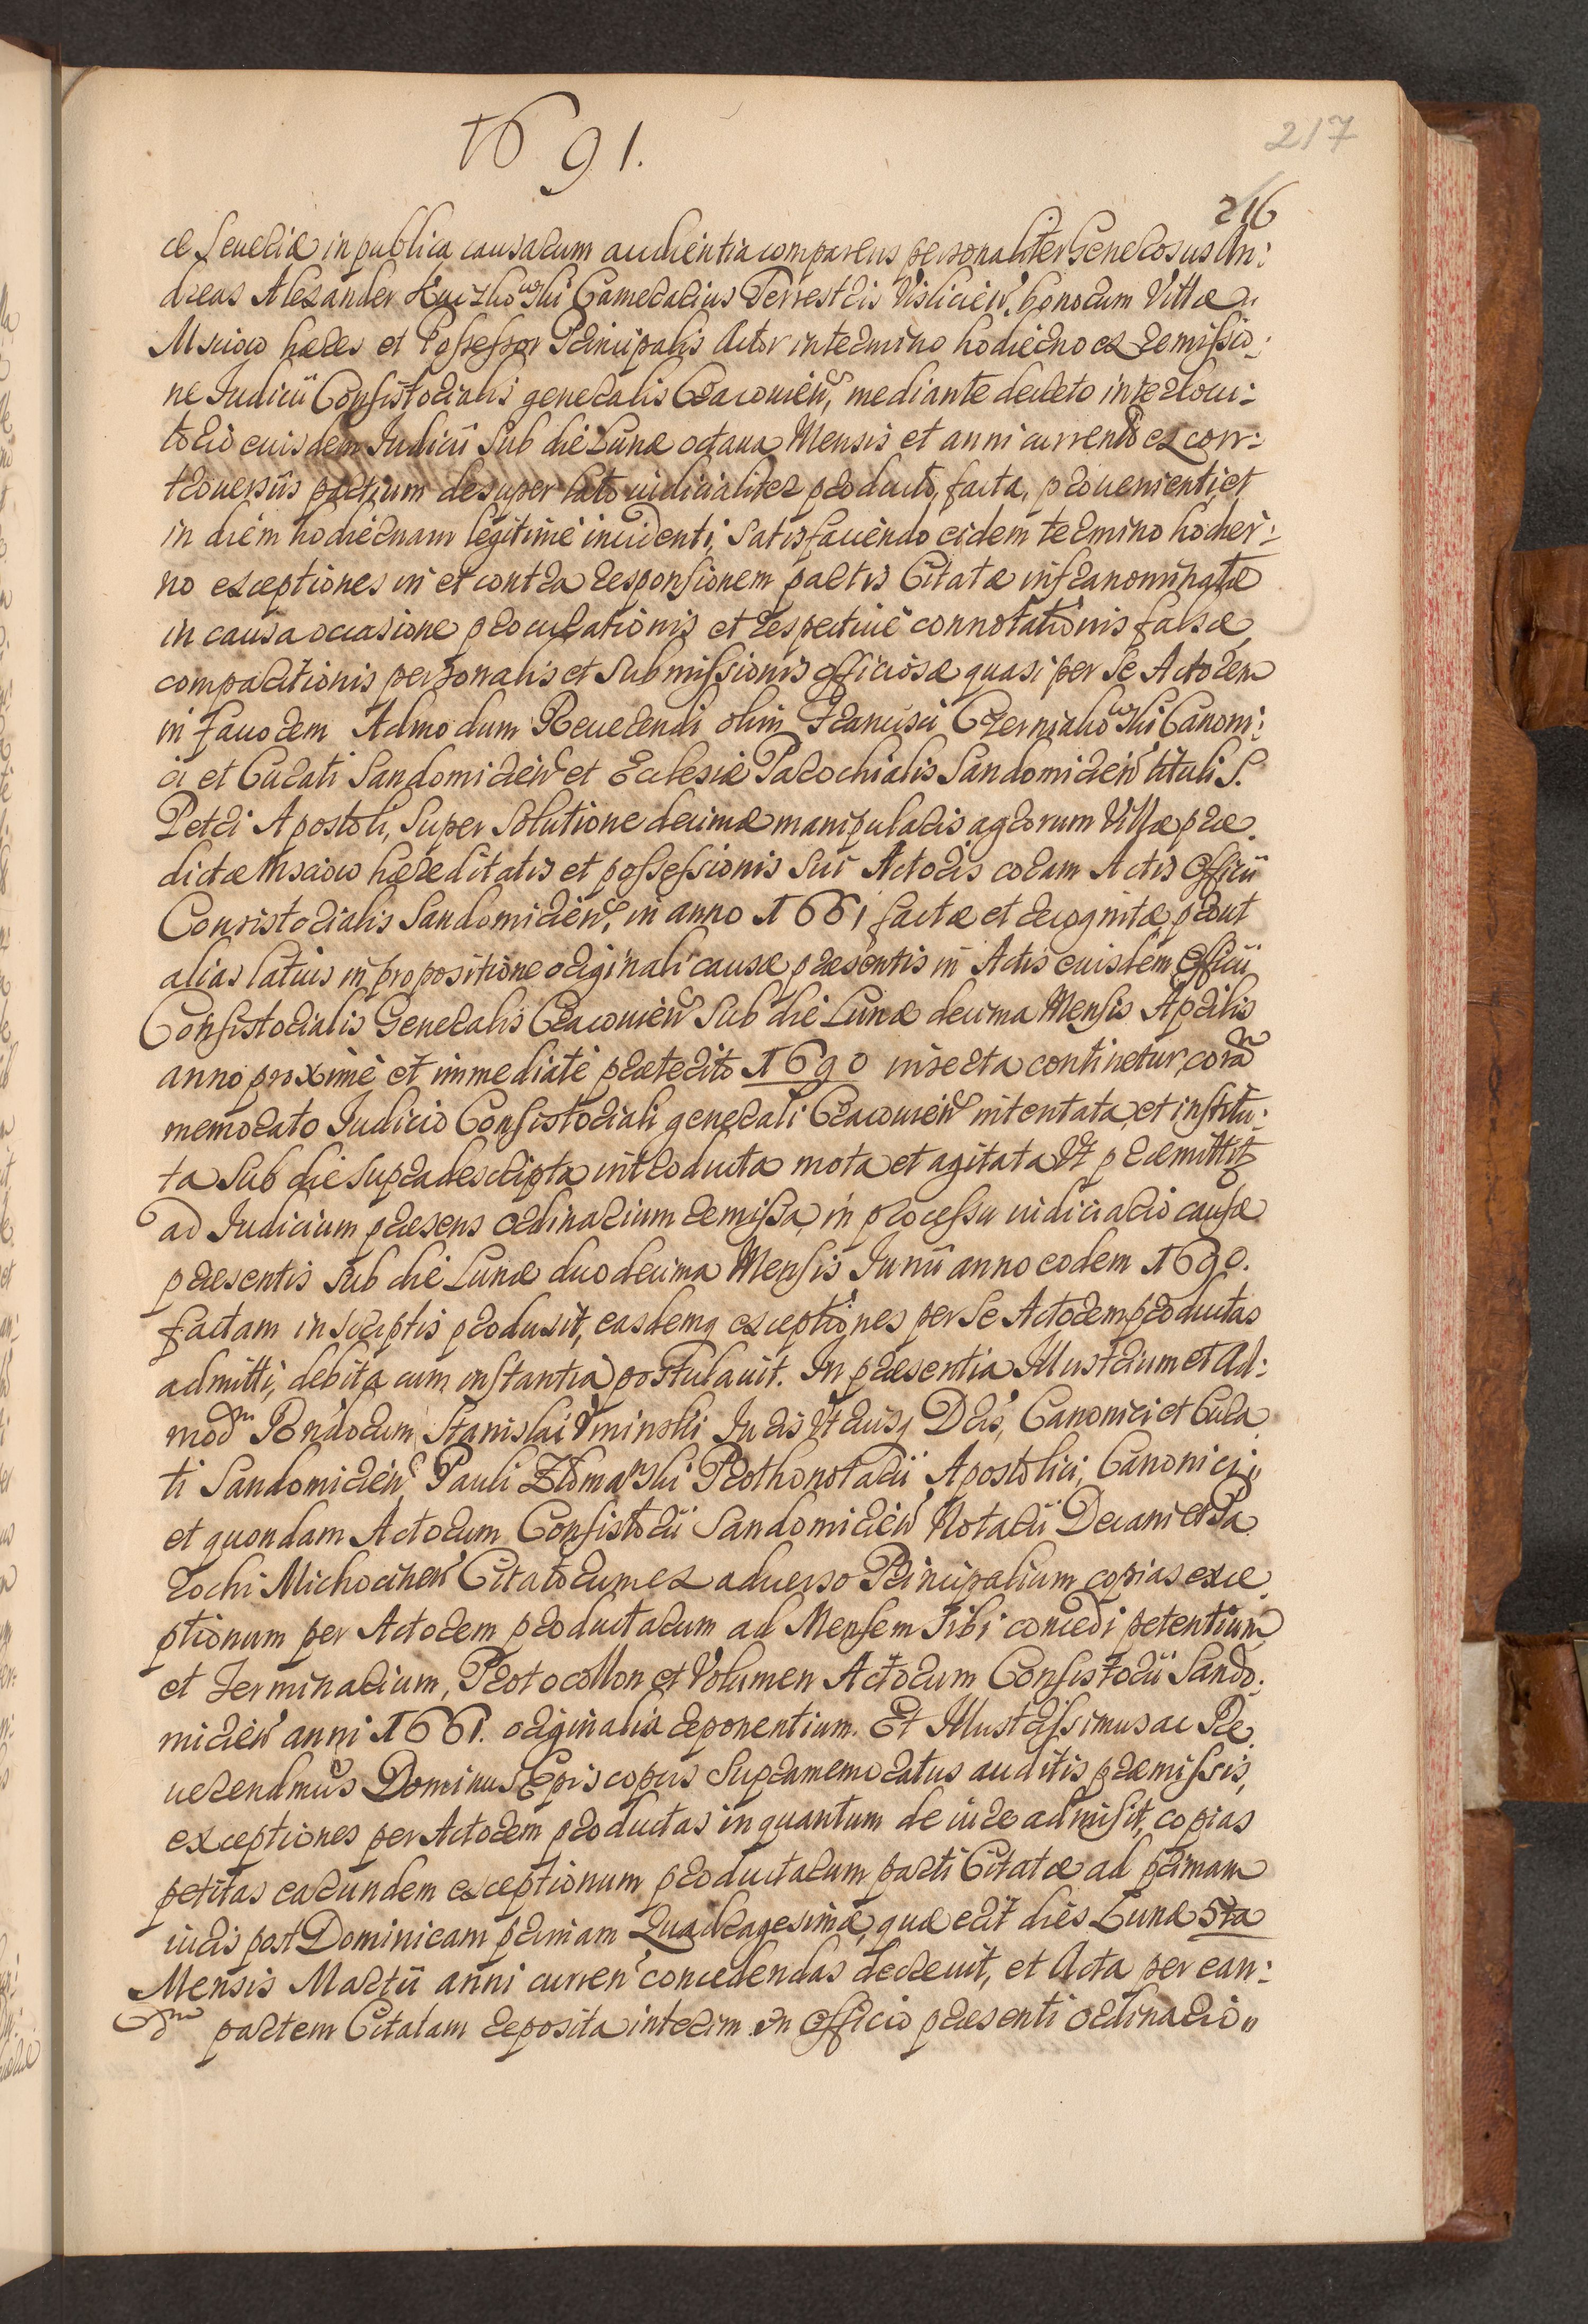 1691.
217
216
æ Seueriæ in publica causarum audientia comparens personaliter Generosus An:
dreas Alexander Kuczkowski Camerarius Terrestris Vislicien̄, bonorum Villæ
Msciow hæres et Possessor Principalis Actor in termino hodierno ex remissio:
ne Iudicii Consistorialis generalis Cracouien̄, mediante decreto interlocu:
torio euisdem Iudicii Sub die Lunæ octaua Mensis et anni currentis ex con:
trouersiis partium desuper lato iudicialiter producto, facta, prouenienti, et
in diem hodiernam legitime incidenti, Satisfaciendo eidem termino hodier:
no exceptiones in et contra responsionem partis Citatæ infranominatæ
in causa occasione procurationis et respectiue connotationis falsæ,
comparitionis personalis et Submissionis officiosæ quasi per Se Actorem
in fauorem Admodum Reuerendi olim Francisci Czerniakowski Canoni:
ci et Curati Sandomirien̄ et Ecclesiæ Parochialis Sandomirien̄ tituli S.
Petri Apostoli, Super Solutione decimæ manipularis agrorum Villæ præ
dictæ Msciow hæreditatis et possessionis Sui Actoris coram Actis Officii
Consistorialis Sandomirien̄, in anno 1661 factæ et recognitæ, prout
alias latius in propositione originali causæ præsentis in Actis euisdem Officii
Consistorialis Generalis Cracouien̄ Sub die Lunæ decima Mensis Aprilis
anno proxime et immediate præterito 1690 inserta continetur, corā
memorato Iudicio Consistoriali generali Cracouien̄ intentata, et institu:
ta Sub die Supradescripta introducta mota et agitata Vt præmittitr
ad Iudicium præsens ordinarium remissa, in processu iudiciario causæ
præsentis Sub die Lunæ duodecima Mensis Iunii anno eodem 1690.
factam in Scriptis produxit, easdemq exceptiones per Se Actorem productas
admitti, debita cum instantia postulauit. In præsentia Illustrium et Ad:
modm Rndorum Stanislai Vminski Iuris Vtriusq Dris, Canonici et Cura
ti Sandomirien̄, Pauli Prothonotarii Apostolici, Canonici
et quondam Actorum Consistorii Sandomirien̄ Notarii Decani et Pa
rochi Michocinen̄ Citatorum ex aduerso Principalium copias exce
ptionum per Actorem productarum ad Mensem Sibi concedi petentium
et Terminarium, Protocollon et Volumen Actorum Consistorii Sando:
mirien̄ anni 1661. originalia reponentium. Et Illustrissimus ac Re
uerendmus Dominus Episcopus Supramemoratus auditis præmissis,
exceptiones per Actorem productas in quantum de iure admisit, copias
petitas earundem exceptionum productarum parti Citatæ ad primam
iuris post Dominicam primam Quadragesimæ, quæ erit dies Lunæ 5ta
Mensis Martii anni curren̄ concedendas decreuit, et Acta per ean:
dm partem Citatam reposita interim in Officio præsenti ordinario